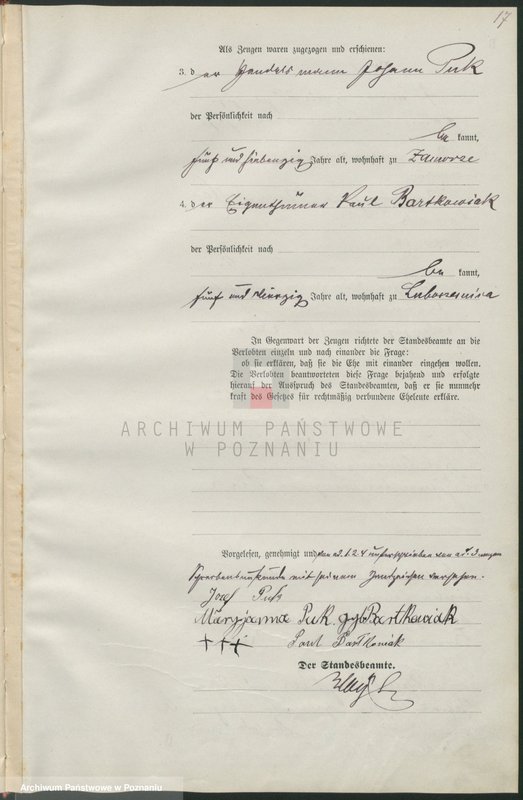 17
Als Zeugen waren zugezogen und erschienen:
3. d er Handelsmann Johann Puk
der Persönlichkeit nach
be kannt,
fünf und siebenzig Jahre alt, wohnhaft zu Zamorze
4. d er Eigenthümer Paul Bartkowiak
der Persönlichkeit nach
be kannt,
fünf und vierzig Jahre alt, wohnhaft zu Luboszesnica
In Gegenwart der Zeugen richtete der Standesbeamte an die
Verlobten einzeln und nach einander die Frage:
ob sie erklären, daß sie die Ehe mit einander eingehen wollen.
Die Verlobten beantworteten diese Frage bejahend und erfolgte
hierauf der Ausspruch des Standesbeamten, daß er sie nunmehr
kraft des Gesetzes für rechtmäßig verbundene Eheleute erkläre.
ARCHIWUM PAŃSTWOWE
W POZNANIU
Vorgelesen, genehmigt und von ad. 1. 2. 4 unterschrieben von ad. 3 wegen
Schreibensunkunde mit seinem Handzeichen versehen.
Jozef Puk
Maryjanna Puk gyb Bartkowiak
+++ Paul Bartkowiak
Der Standesbeamte.
Archiwum Państwowe w Poznaniu